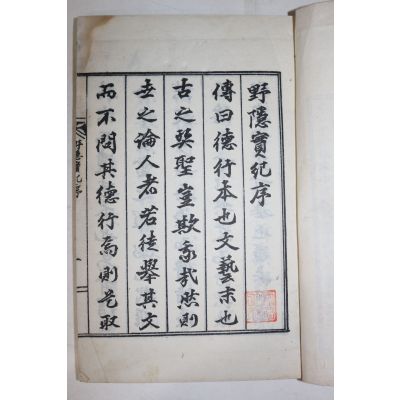 野隱實紀序
傳曰德行本也文藝末也
古之賢聖豈欺我哉然則
世之論人者若徒擧其文
而不問其德行焉則是取
野隱實紀序